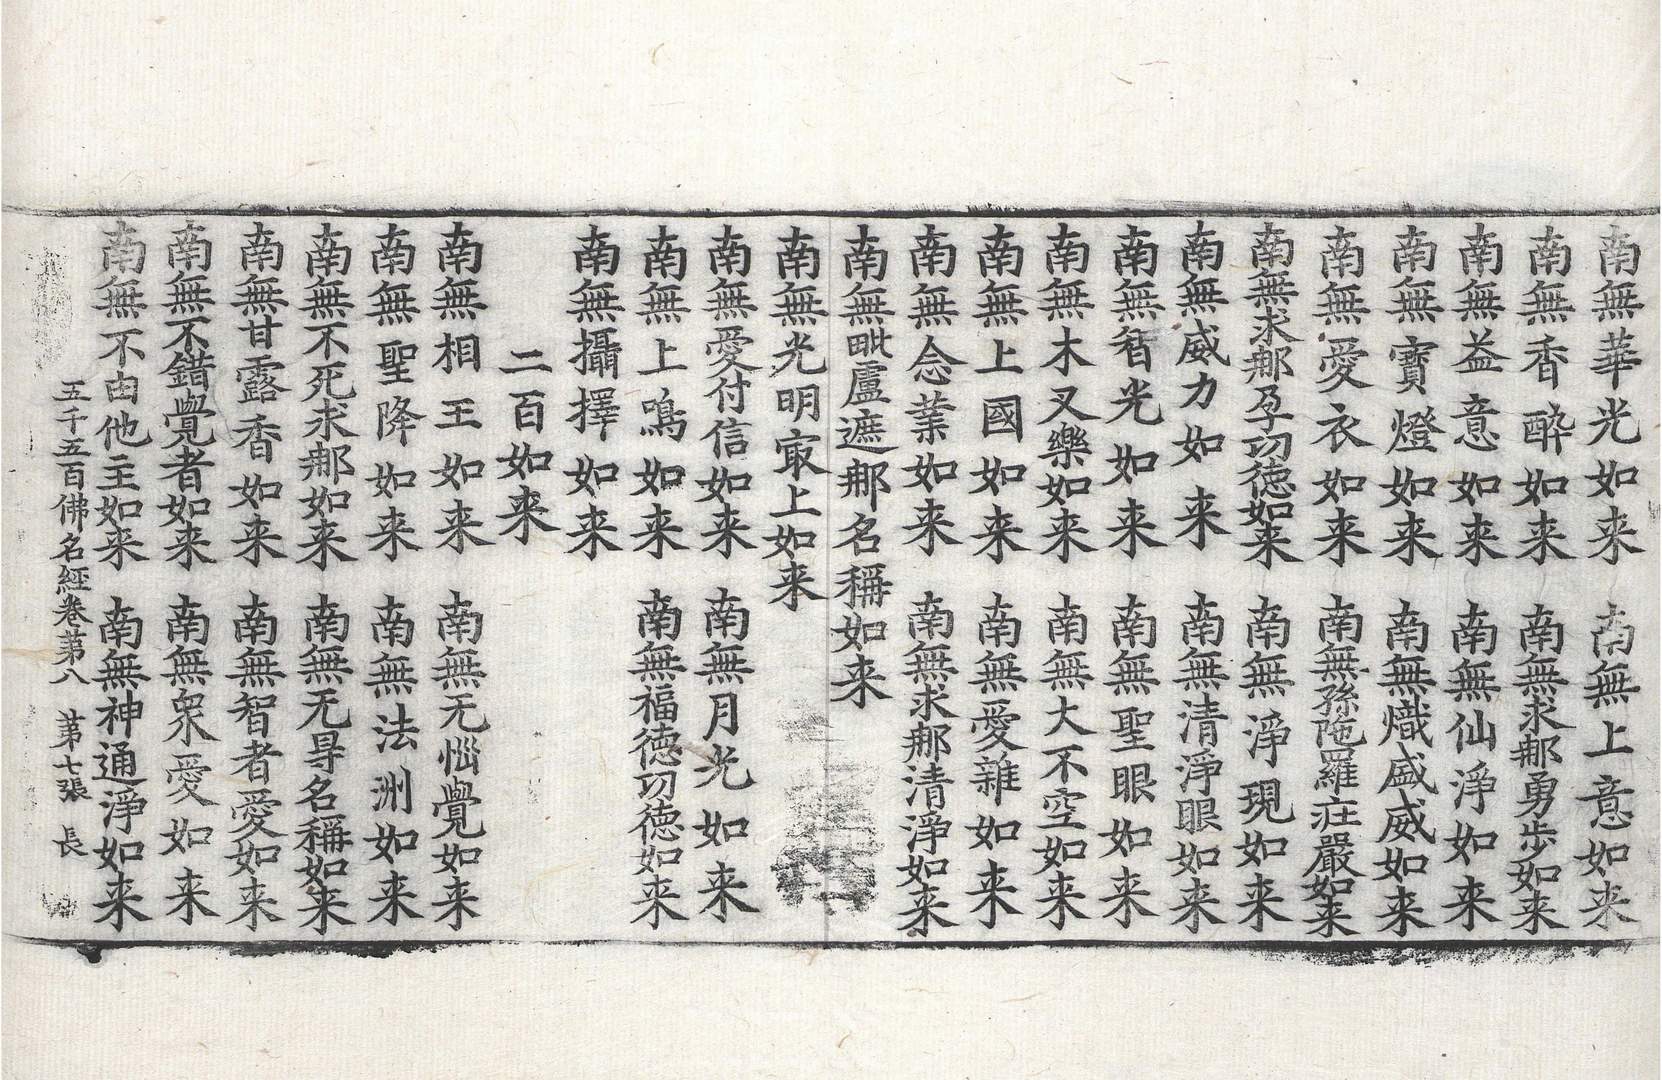 南無華光如来 南無上意如来
南無香醉如来 南無求那勇步如来
南無益意如来 南無仙淨如来
南無寶燈如来 南無熾盛威如来
南無愛衣如来 南無孫陁羅庄嚴如来
南無求那孕功德如来 南無淨現如来
南無威力如来 南無清淨眼如来
南無智光如来 南無聖眼如来
南無木叉樂如来 南無大不空如来
南無上國如来 南無愛雜如来
南無念業如来 南無求那清淨如来
南無毗盧遮那名稱如来
南無光明㝡上如来
南無愛付信如来 南無月光如来
南無上鳴如来 南無福德功德如来
南無攝擇如来
二百如来
南無相王如来 南無无惱覺如来
南無聖降如来 南無法洲如来
南無不死求那如来 南無无㝵名稱如来
南無甘露香如来 南無智者愛如来
南無不錯覺者如来 南無衆愛如来
南無不由他主如来 南無神通淨如来
五千五百佛名經卷苐八 苐七張 長